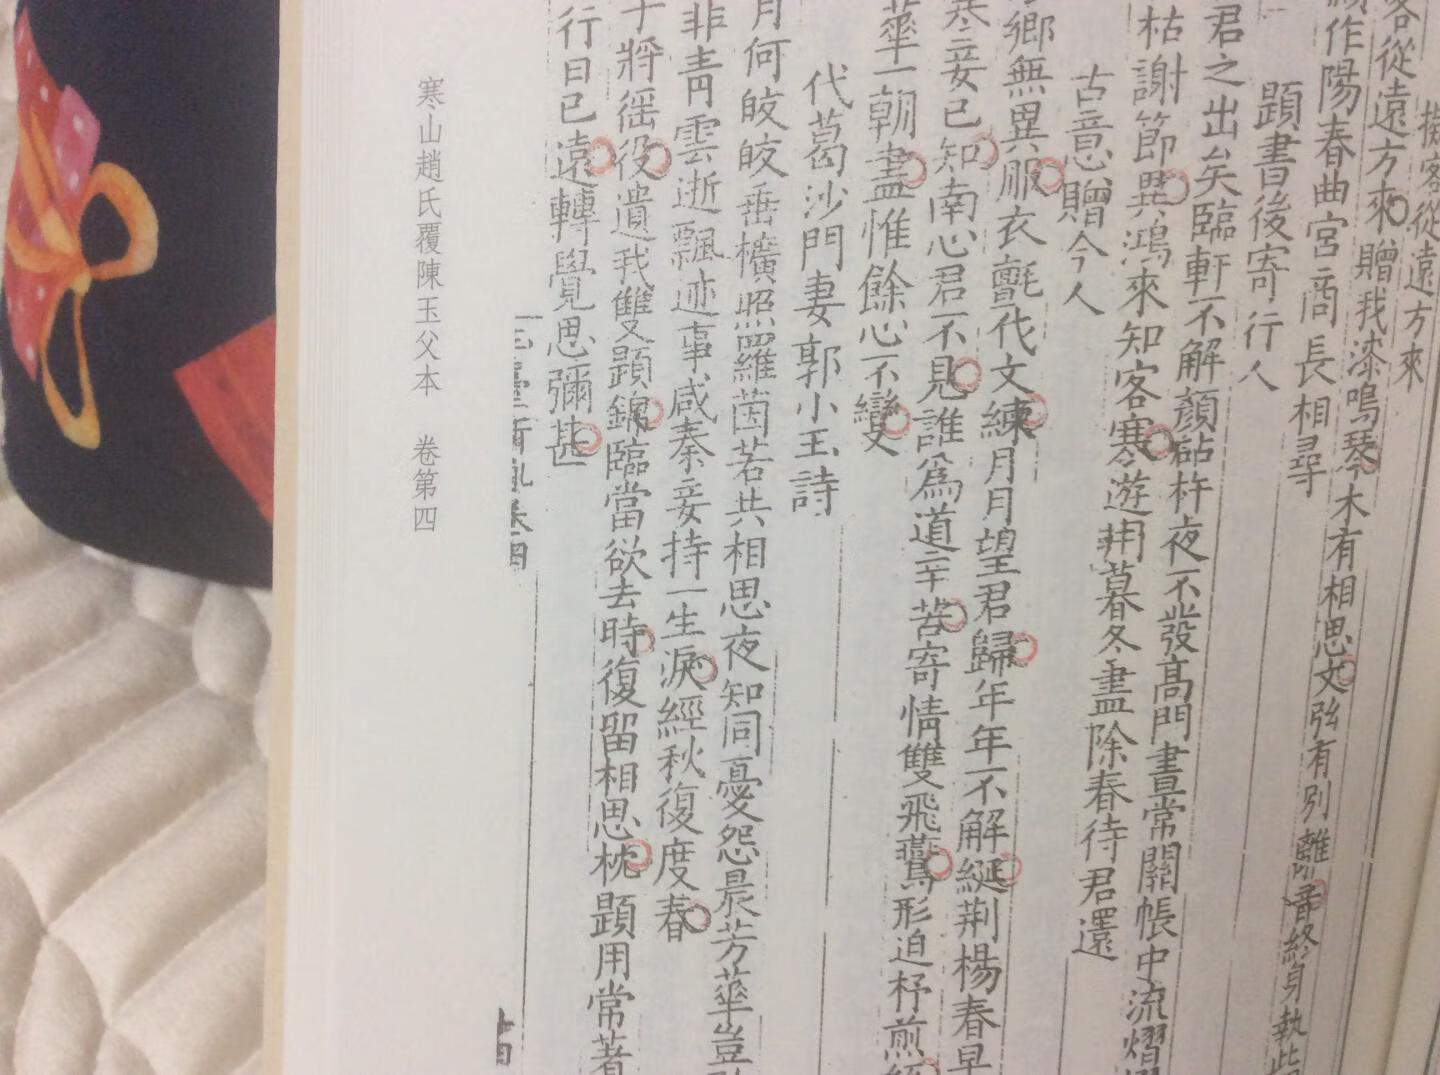 擬客從遠方來
客從遠方來贈我漆鳴琴木有相思文弦有別離音終身執此
作陽春曲宮商長相尋
題書後寄行人
君之出矣臨軒不解顏砧杵夜不發高門晝常關帳中流熠
枯謝節異鴻來知客寒遊用暮冬盡除春待君還
古意贈今人
鄉無異服衣氈代文練月月望君歸年年不解綖荆楊春早
寒妾已知南心君不見誰爲道辛苦寄情雙飛鷰形迫杼煎
華一朝盡惟餘心不變
代葛沙門妻郭小玉詩
月何皎皎垂櫎照羅茵若共相思夜知同憂怨晨芳華豈
非青雲逝飄迹事咸秦妾持一生淚經秋復度春
子將徭役遺我雙題錦臨當欲去時復留相思枕題用常著
行日已遠轉覺思彌甚
寒山趙氏覆陳玉父本 卷第四